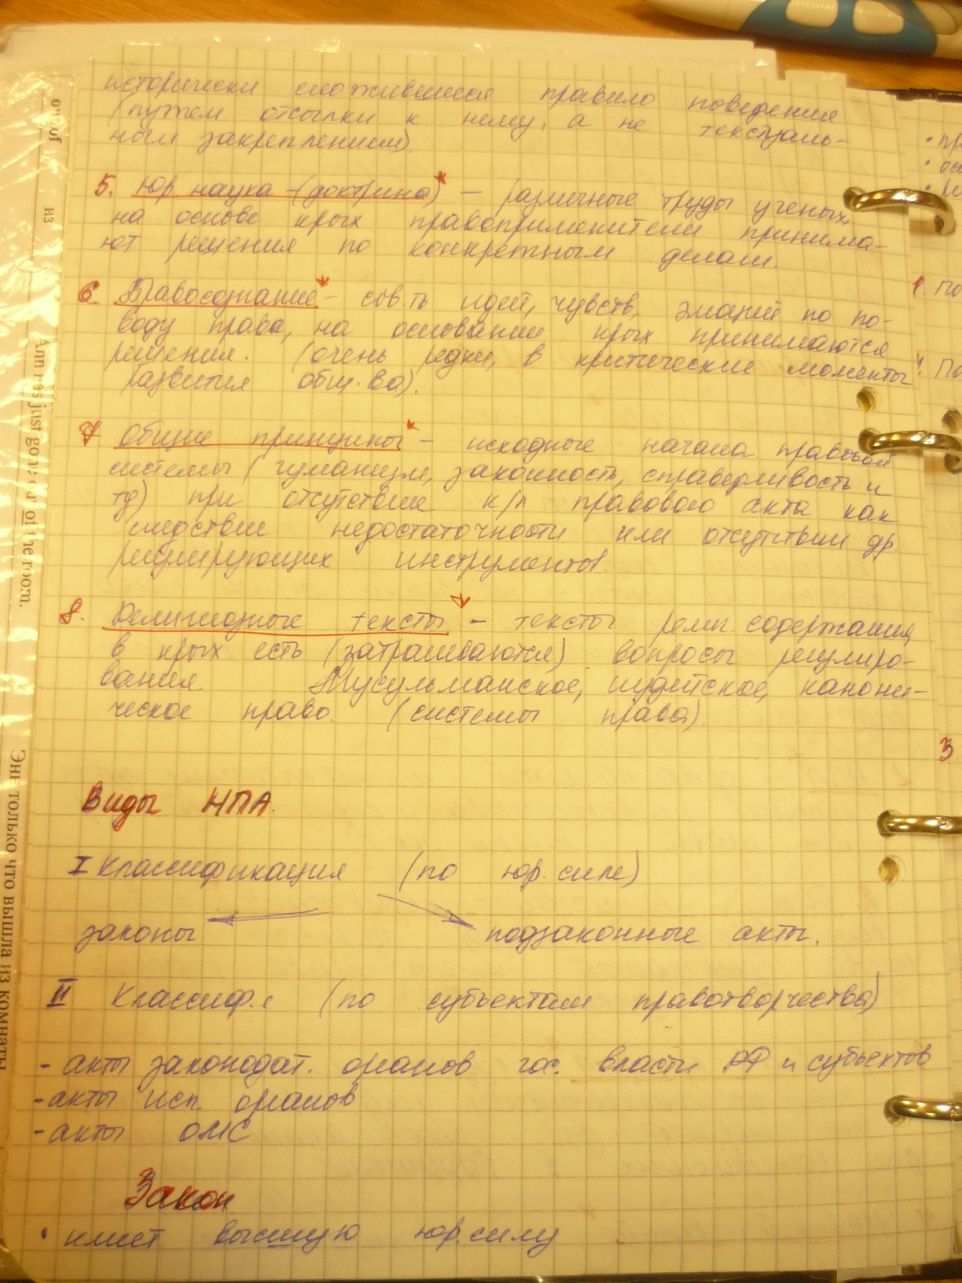 исторически сложившиеся правило поведения
(путем отсылки к нему, а не текстуаль-
ном закреплении)
5. Юр. наука (доктрина)* – различные труды ученых,
на основе крых правоприменители принима-
ют решения по конкретным делам.
6 Правосознание* – сов-ть идей, чувств, знаний по по-
воду права, на основании крых принимаются
решения. (очень редки, в критические моменты
развития общ-ва).
7 Общие принципы* – исходные начала правовой
системы (гуманизм, законность, справедливость и
тд) при отсутствие к/л правового акта как
следствие недостаточности или отсутствии др
регулирующих инструментов.
8. Религиозные тексты* – тексты религ содержания,
в крых есть (затрагиваются) вопросы регулиро-
вания Мусульманское, иудейское, канони-
ческое право. (системы права)
Виды НПА.
I Классификация (по юр. силе)
законы подзаконные акты.
II Классиф. (по субъектам правотворчества)
- акты законодат. органов гос. власти РФ и субъектов
- акты исп. органов
- акты ОМС
Закон
• имеет высшую юр. силу
out of
из
Ann has just gone out of the room.
Энн только что вышла из комнаты
• пр
• ос
По
По
3